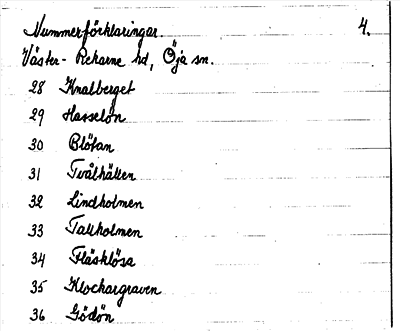 Nummerförklaringar. 4.
Väster-Rekarne hd, Öja sn.
28 Knalberget
29 Hasselön
30 Blötan
31 Tvålhällen
32 Lindholmen
33 Tallholmen
34 Fläsklösa
35 Klockargraven
36 Gödön